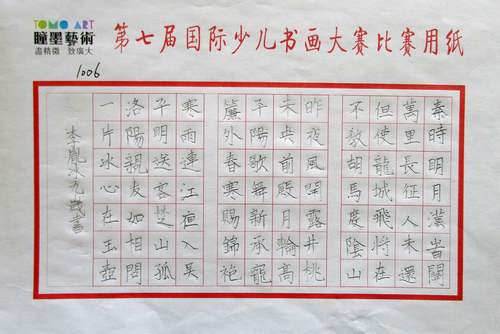 TOMO ART
瞳墨藝術
盡精微 致廣大
第七届国际少儿书画大赛比赛用纸
1006
秦時明月漢旹關
萬里長征人未還
但使龍城飛將在
不教胡馬度陰山
昨夜風開露井桃
未央前殿月輪高
平陽歌舞新承寵
簾外春寒賜錦袍
寒雨連江夜入吴
平明送客楚山孤
洛陽親友如相問
一片冰心在玉壺
李冰九歲書